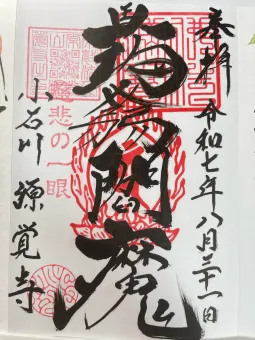 奉拝
令和七年八月三十一日
蒟蒻閻魔
慈悲の一眼
小石川 源覚寺